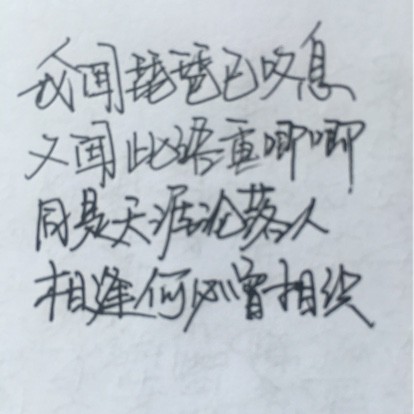 我闻琵琶已叹息
又闻此语重唧唧
同是天涯沦落人
相逢何必曾相识